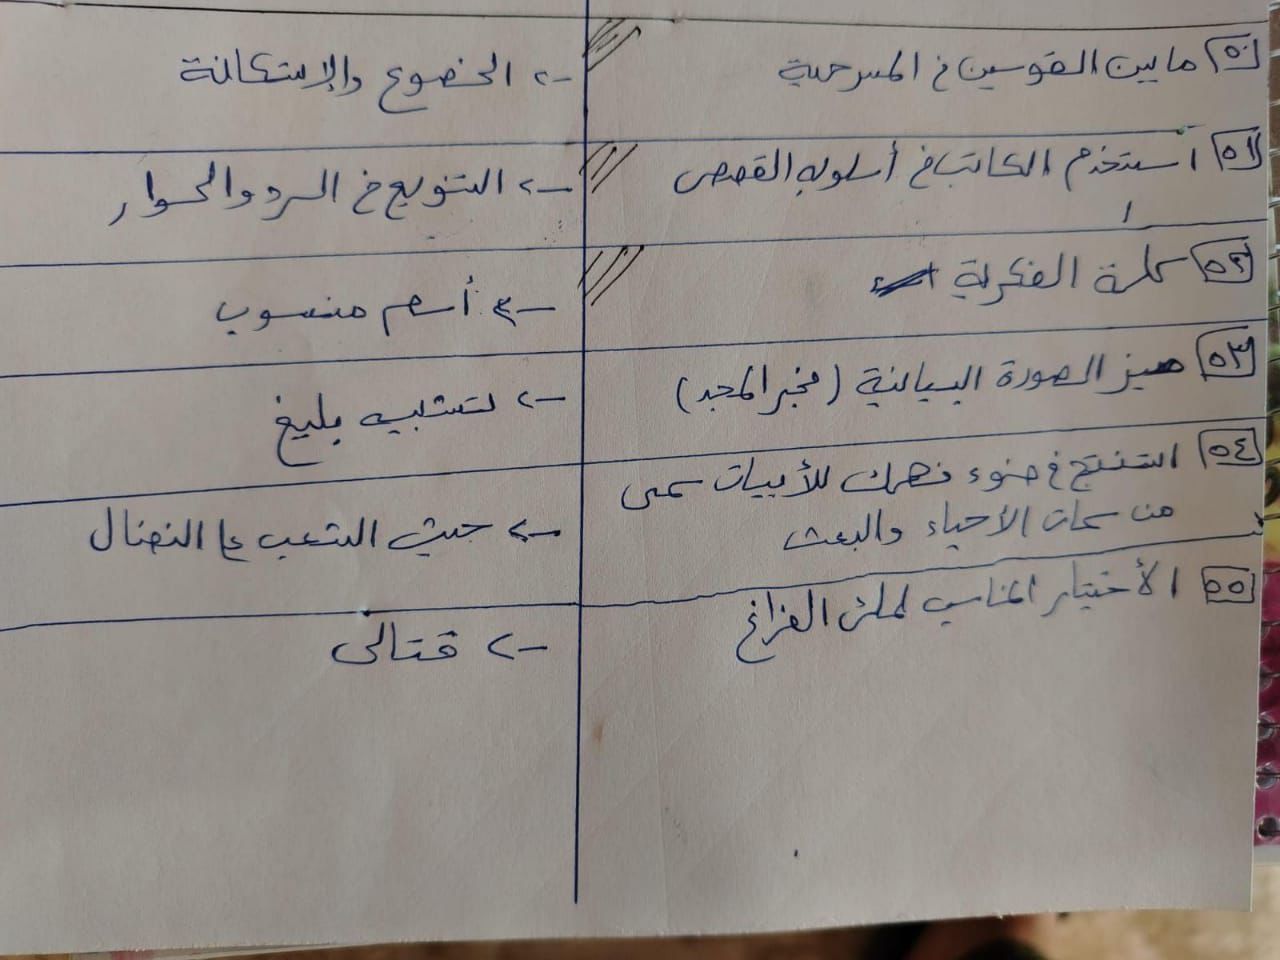 ٥٠ ما بين القوسين في المسرحية
-> الخضوع والإستكانة
٥١ أستخدم الكاتب في أسلوبه القصصي
-> التنويع في السرد والحوار
٥٢ كلمة الفكرية
-> أسم منسوب
٥٣ ميز الصورة البيانية (فخبر المجد)
-> تشبيه بليغ
٥٤ استنتج في ضوء فهمك للأبيات سمى
من سمات الأحياء والبعث
-> حيث الشعب على النضال
٥٥ الأختيار المناسب لملئ الفراغ
-> قتالى